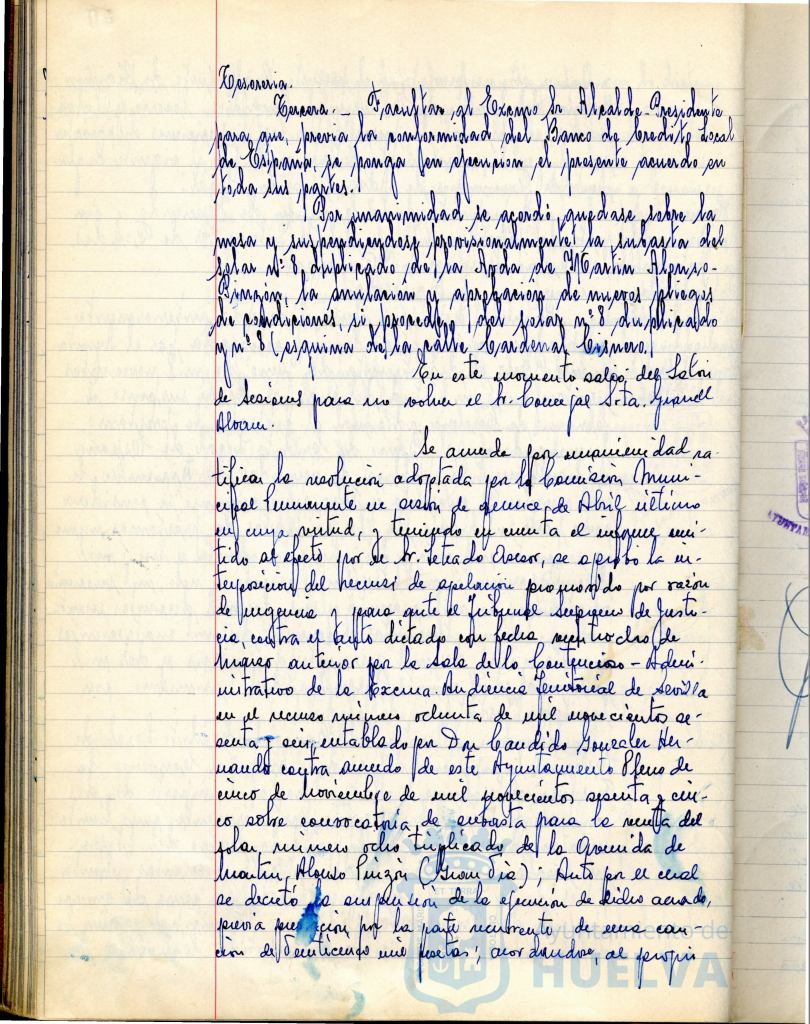 Tesoreria.
Tercera.- Facultar al Excmo Sr Alcalde-Presidente
para que, previa la conformidad del Banco de Credito Local
de España, se ponga en ejecucion el presente acuerdo en
toda sus partes.
Por unanimidad se acordó quedase sobre la
mesa y suspendiendose provisionalmente la subasta del
solar nº 8 duplicado de la Avda de Martin Alonso-
Pinzón, la anulación y aprobación de nuevos pliegos
de condiciones, si procede, del solar nº 8 duplicado
y nº 8 (esquina de la calle Cardenal Cisnero.
En este momento salió del Salón
de Sesiones para no volver el Sr. Concejal Srta.
Se acuerda por unanimidad ra-
tificar la resolución adoptada por la Comisión Muni-
cipal Permanente en sesión de quince de Abril último
en cuya virtud, y teniendo en cuenta el informe emi-
tido al efecto por el Sr. Letrado Asesor, se aprobó la in-
terposición del recurso de apelación promovido por razón
de urgencia y para ante el Tribunal Supremo de Justi-
cia, contra el auto dictado con fecha veintiocho de
Marzo anterior por la Sala de lo Contencioso-Admi-
nistrativo de la Excma. Audiencia Territorial de Sevilla
en el recurso número ochenta de mil novecientos se-
senta y seis, entablado por Don Candido Gonzalez Her-
nando contra acuerdo de este Ayuntamiento Pleno de
cinco de Noviembre de mil novecientos sesenta y cin-
co, sobre convocatoria de subasta para la venta del
solar número ocho triplicado de la Avenida de
Martin Alonso Pinzón (Gran Via); Auto por el cual
se decretó la suspensión de la ejecución de dicho acuerdo,
previa prestación por la parte recurrente de una cau-
ción de veinticinco mil pesetas; acordandose, al propio
Ayuntamiento de
HUELVA